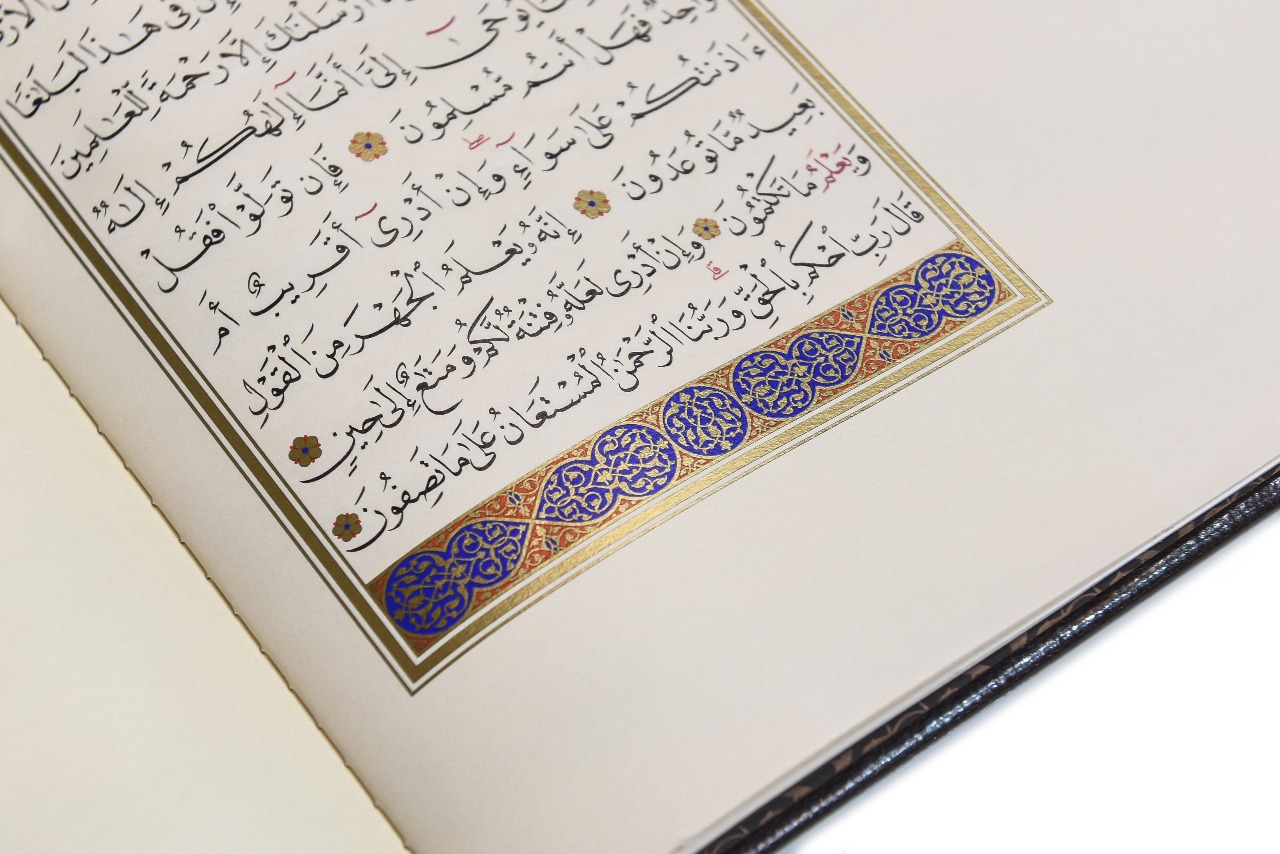 إِنَّ فِى هَٰذَا لَبَلَٰغًا
أَرْسَلْنَٰكَ إِلَّا رَحْمَةً لِّلْعَٰلَمِينَ
يُوحَىٰٓ إِلَىَّ أَنَّمَآ إِلَٰهُكُمْ إِلَٰهٌ
وَٰحِدٌ فَهَلْ أَنتُم مُّسْلِمُونَ فَإِن تَوَلَّوْا۟ فَقُلْ
ءَاذَنتُكُمْ عَلَىٰ سَوَآءٍ ۖ وَإِنْ أَدْرِىٓ أَقَرِيبٌ أَم
بَعِيدٌ مَّا تُوعَدُونَ إِنَّهُۥ يَعْلَمُ ٱلْجَهْرَ مِنَ ٱلْقَوْلِ
وَيَعْلَمُ مَا تَكْتُمُونَ وَإِنْ أَدْرِى لَعَلَّهُۥ فِتْنَةٌ لَّكُمْ وَمَتَٰعٌ إِلَىٰ حِينٍ
قَٰلَ رَبِّ ٱحْكُم بِٱلْحَقِّ ۗ وَرَبُّنَا ٱلرَّحْمَٰنُ ٱلْمُسْتَعَانُ عَلَىٰ مَا تَصِفُونَ